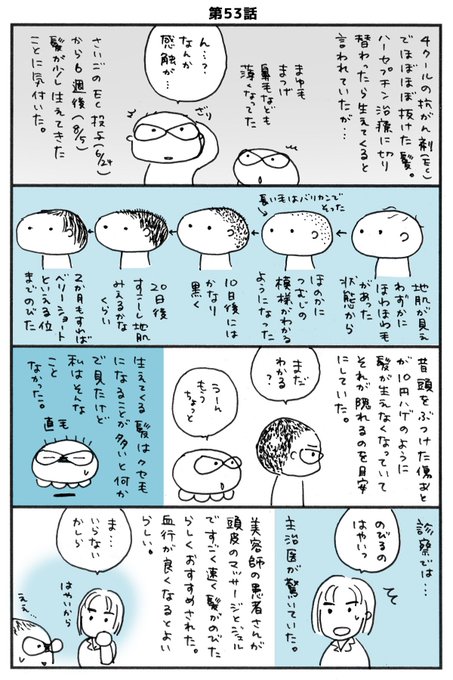 第53話
4クールの抗がん剤(EC)
でほぼほぼ抜けた髪。
ハーセプチン治療に切り
替わったら生えてくると
言われていたが…
まゆも
まつげ
鼻毛なども
薄くなってた
ん…?
なんか
感触が…
ざり
さいごのEC投与(6/24)
から6週後(8/5)
髪が少し生えてきた
ことに気付いた。
長い毛はバリカンで
そった
地肌が見え
わずかに
ほわほわ毛
があった
状態から
ほのかに
つむじの
模様がわかる
ようになった
10日後には
かなり
黒く
20日後
すこーし地肌
みえるかな
くらい
2か月もすれば
ベリーショート
といえる位
までのびた
昔頭をぶつけた傷あと
が10円ハゲのように
髪が生えなくなっていて
それが隠れるのを目安
にしていた。
まだ
わかる?
うーん
もう
ちょっと
生えてくる髪はクセ毛
になることが多いと何か
で見たけど
私はそんな
こと
なかった。
直毛
診察では…
のびるの
はやいっ
主治医が驚いていた。
美容師の患者さんが
頭皮のマッサージとジェル
ですごく速く髪がのびた
らしくおすすめされた。
血行が良くなるとよい
らしい。
ま…
いらない
かしら
はやいから
ええ…